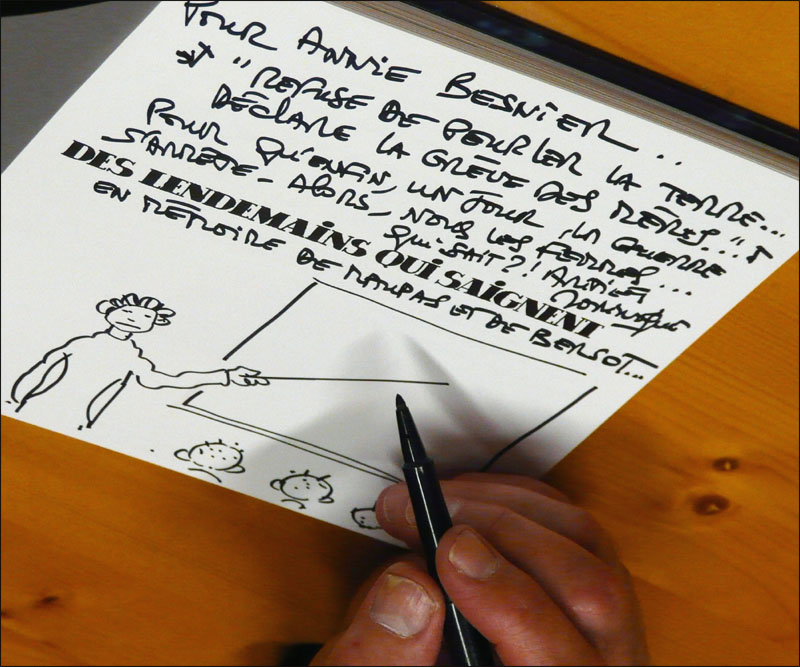 POUR ANNIE BESNIER...
* "REFUSE DE PEUPLER LA TERRE...
DÉCLARE LA GRÈVE DES MÈRES..." *
POUR QU'ENFIN, UN JOUR, LA GUERRE
S'ARRÊTE - ALORS, NOUS LES FEMMES...
QUI SAIT?!
DOMINIQUE
DES LENDEMAiNS QUi SAiGNENT
EN MÉMOIRE DE MAUPAS ET DE BERSOT...